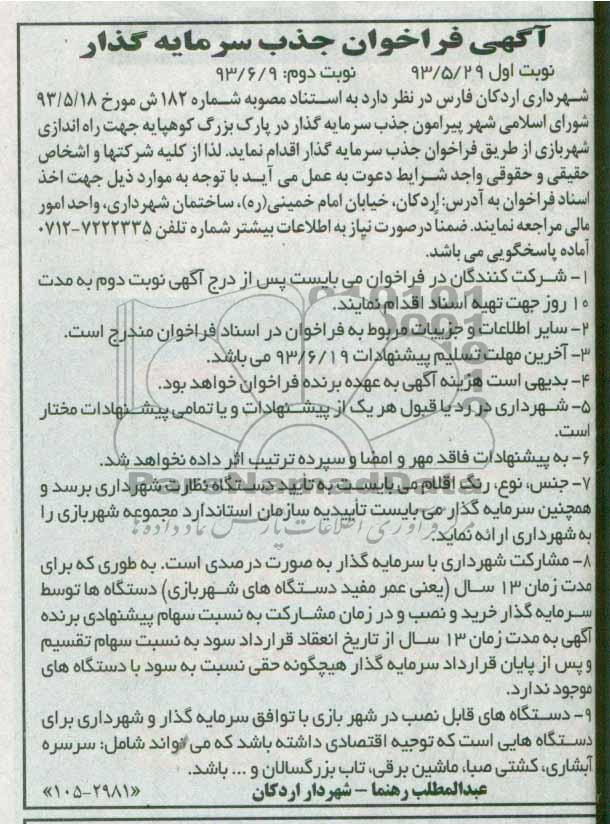 آگهی فراخوان جذب سرمایه گذار
نوبت اول ۹۳/۵/۲۹ نوبت دوم: ۹۳/۶/۹
شهرداری اردکان فارس در نظر دارد به استناد مصوبه شماره ۱۸۲ ش مورخ ۹۳/۵/۱۸
شورای اسلامی شهر پیرامون جذب سرمایه گذار در پارک بزرگ کوهپایه جهت راه اندازی
شهربازی از طریق فراخوان جذب سرمایه گذار اقدام نماید. لذا از کلیه شرکتها و اشخاص
حقیقی و حقوقی واجد شرایط دعوت به عمل می آید با توجه به موارد ذیل جهت اخذ
اسناد فراخوان به آدرس: اردکان، خیابان امام خمینی(ره)، ساختمان شهرداری، واحد امور
مالی مراجعه نمایند. ضمناً درصورت نیاز به اطلاعات بیشتر شماره تلفن ۷۲۲۲۳۳۵-۰۷۱۲
آماده پاسخگویی می باشد.
۱- شرکت کنندگان در فراخوان می بایست پس از درج آگهی نوبت دوم به مدت
۱۰ روز جهت تهیه اسناد اقدام نمایند.
۲- سایر اطلاعات و جزییات مربوط به فراخوان در اسناد فراخوان مندرج است.
۳- آخرین مهلت تسلیم پیشنهادات ۹۳/۶/۱۹ می باشد.
۴- بدیهی است هزینه آگهی به عهده برنده فراخوان خواهد بود.
۵- شهرداری در رد یا قبول هر یک از پیشنهادات و یا تمامی پیشنهادات مختار
است.
۶- به پیشنهادات فاقد مهر و امضا و سپرده ترتیب اثر داده نخواهد شد.
۷- جنس، نوع، رنگ اقلام می بایست به تأیید دستگاه نظارت شهرداری برسد و
همچنین سرمایه گذار می بایست تأییدیه سازمان استاندارد مجموعه شهربازی را
به شهرداری ارائه نماید.
۸- مشارکت شهرداری با سرمایه گذار به صورت درصدی است. به طوری که برای
مدت زمان ۱۳ سال (یعنی عمر مفید دستگاه های شهربازی) دستگاه ها توسط
سرمایه گذار خرید و نصب و در زمان مشارکت به نسبت سهام پیشنهادی برنده
آگهی به مدت زمان ۱۳ سال از تاریخ انعقاد قرارداد سود به نسبت سهام تقسیم
و پس از پایان قرارداد سرمایه گذار هیچگونه حقی نسبت به سود با دستگاه های
موجود ندارد.
۹- دستگاه های قابل نصب در شهر بازی با توافق سرمایه گذار و شهرداری برای
دستگاه هایی است که توجیه اقتصادی داشته باشد که می تواند شامل: سرسره
آبشاری، کشتی صبا، ماشین برقی، تاب بزرگسالان و ... باشد.
عبدالمطلب رهنما - شهردار اردکان «۱۰۵-۲۹۸۱»
ParsNamadData
مرکز فرآوری اطلاعات پارس نماد داده ها